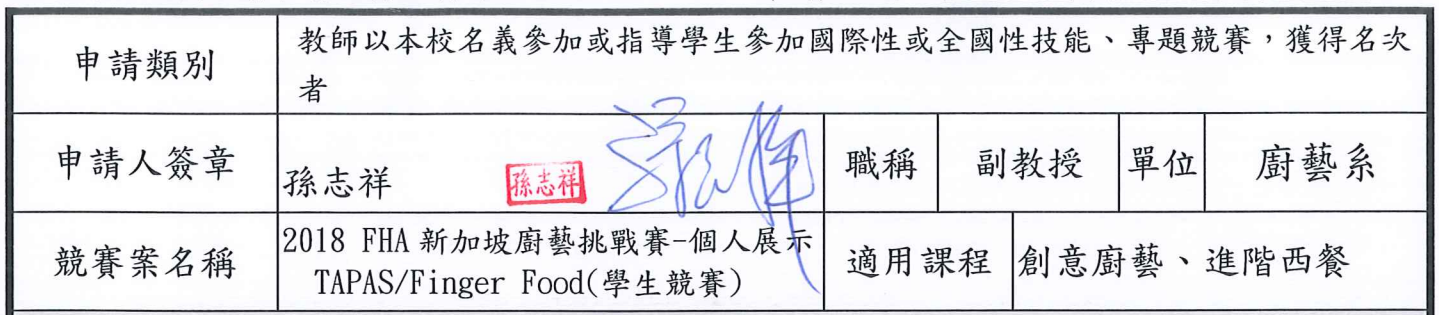 申請類別
教師以本校名義參加或指導學生參加國際性或全國性技能、專題競賽，獲得名次
者
申請人簽章
孫志祥
孫志祥
職稱
副教授
單位
廚藝系
競賽案名稱
2018 FHA 新加坡廚藝挑戰賽-個人展示
TAPAS/Finger Food(學生競賽)
適用課程
創意廚藝、進階西餐